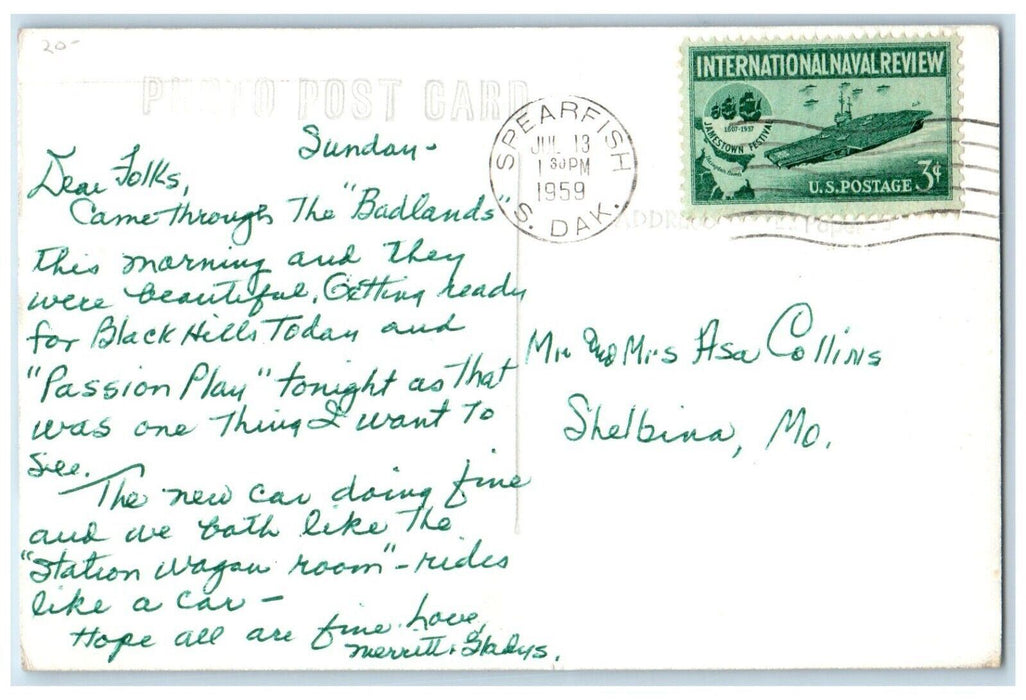 20-
PHOTO POST CARD
SPEARFISH
JUL 13
1 30 PM
1959
S. DAK.
INTERNATIONAL NAVAL REVIEW
1607-1957
JAMESTOWN FESTIVAL
U.S. POSTAGE 3¢
ADDRESS
Sunday-
Dear Folks,
Came through The "Badlands"
this morning and they
were beautiful. Getting ready
for Black Hills Today and
"Passion Play" tonight as that
was one thing I want to
see.
The new car doing fine
and we both like the
"Station wagon room" - rides
like a car -
Hope all are fine. Love,
Merritt & Gladys.
Mr and Mrs Asa Collins
Shelbina, Mo.